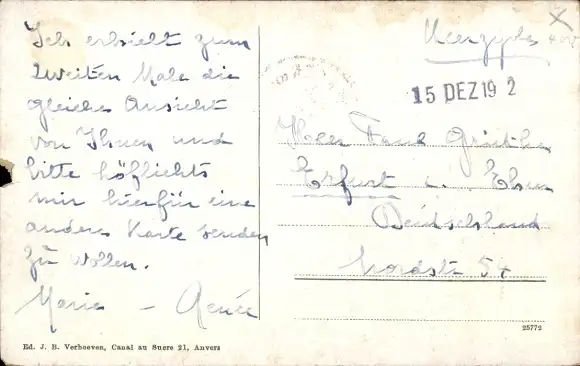 Ich erhielt zum
Zweiten Male die
gleiche Ansicht
von Ihnen und
bitte höflichts
mir hierfür eine
andere Karte senden
zu wollen.
Marie – Renée
Ed. J. B. Verhoeven, Canal au Sucre 21, Anvers
15 DEZ 19 2
Herr Paul
Erfurt i.
Deutschland
Nordstr 54
25772